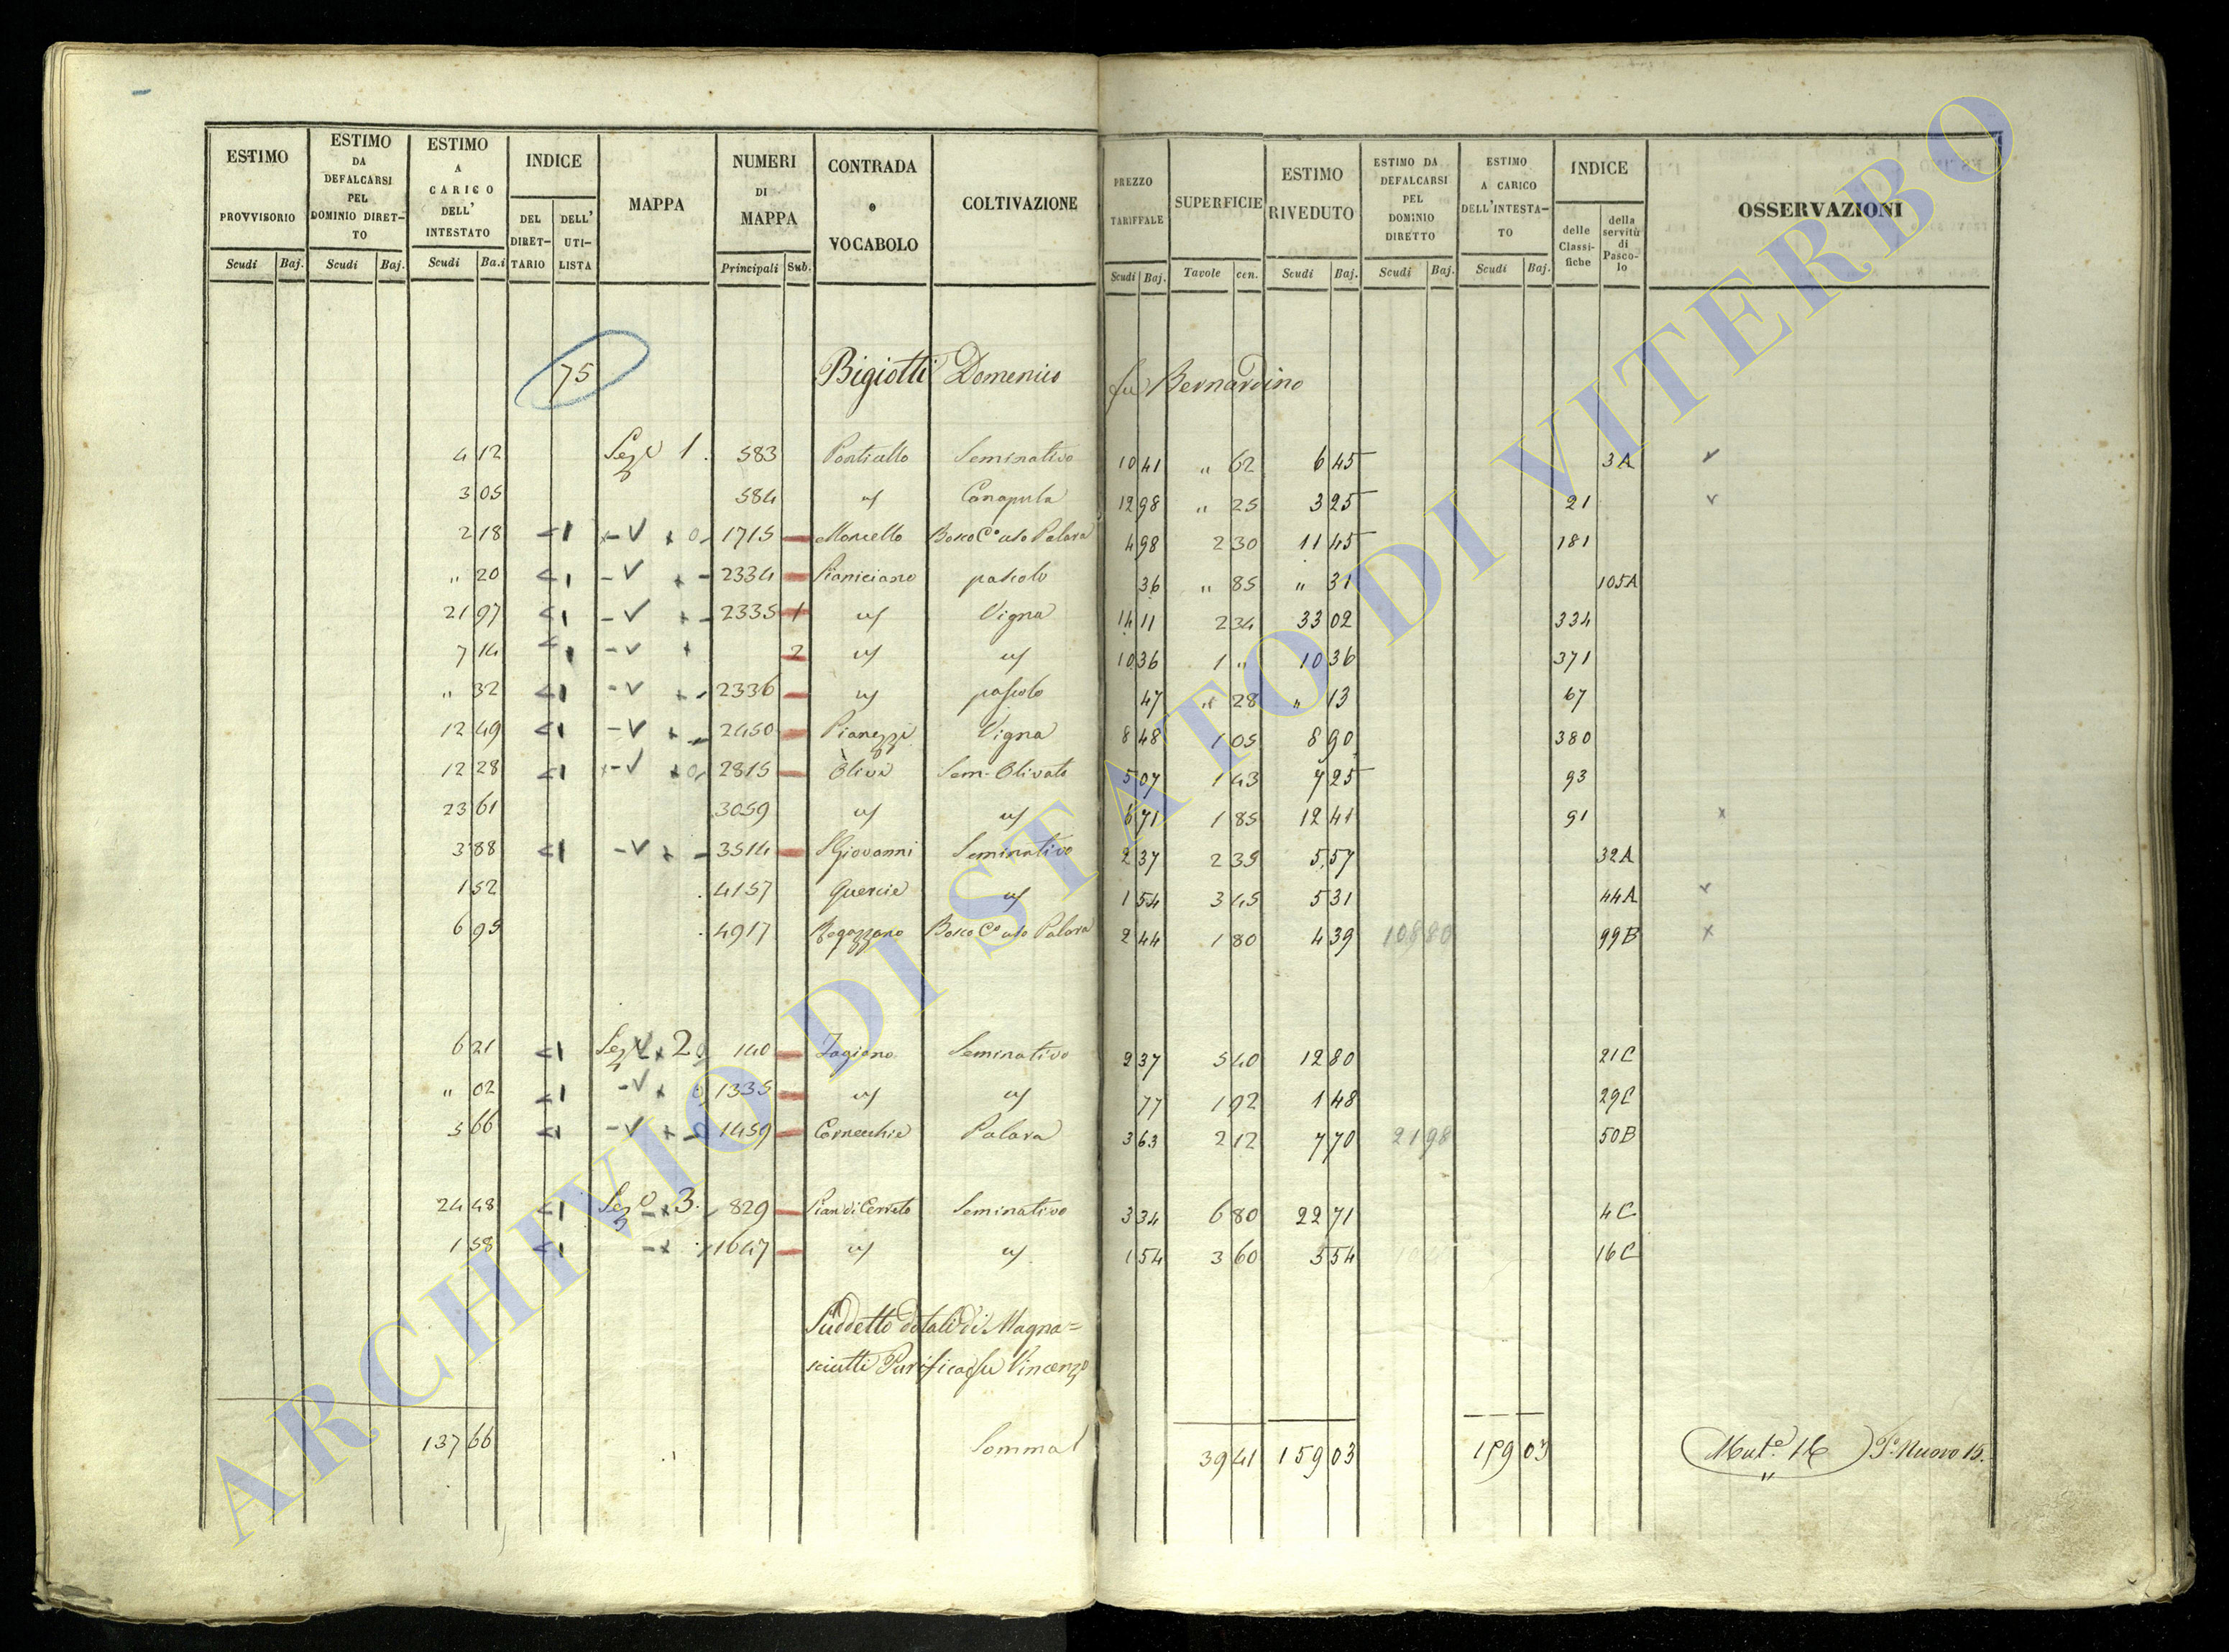 ESTIMO PROVVISORIO Scudi Baj.
ESTIMO DA DEFALCARSI PEL DOMINIO DIRET-TO Scudi Baj.
ESTIMO A CARICO DELL' INTESTATO Scudi Ba.i
INDICE DEL DIRET-TARIO DELL' UTI-LISTA
MAPPA
NUMERI DI MAPPA Principali Sub.
CONTRADA e VOCABOLO
COLTIVAZIONE
PREZZO TARIFFALE Scudi Baj.
SUPERFICIE Tavole cen.
ESTIMO RIVEDUTO Scudi Baj.
ESTIMO DA DEFALCARSI PEL DOMINIO DIRETTO Scudi Baj.
ESTIMO A CARICO DELL'INTESTA-TO Scudi Baj.
INDICE delle Classi-fiche della servitù di Pasco-lo
OSSERVAZIONI
75 Bigiotti Domenico fu Bernardino
4 12 Sez.e 1. 583 Ponticello Seminativo 10 41 " 62 6 45 3A
3 05 584 " Canapula 12 98 " 25 3 25 21
2 18 1715 Bosco C.o uso Palara 4 98 2 30 11 45 181
" 20 2334 pascolo 36 " 85 " 31 105A
21 97 2335 1 Vigna 14 11 2 34 33 02 334
7 14 2 10 36 1 " 10 36 371
" 32 2336 pascolo 47 " 28 " 13 67
12 49 2450 Pianezze Vigna 8 48 1 05 8 90 380
12 28 2815 Olive Sem. Olivato 5 07 1 43 7 25 93
23 61 3059 6 71 1 85 12 41 91
3 88 3514 S Giovanni Seminativo 2 37 2 35 5,57 32A
1 52 4157 Quercie 1 54 3 45 5 31 44A
6 95 4917 Bosco C.o uso Palara 2 44 1 80 4 39 108 80 99B
6 21 Sez.e 2 140 Seminativo 2 37 5 40 12 80 21C
" 02 1335 77 1 92 1 48 29C
5 66 1459 Cornecchie Palara 3 63 2 12 7 70 21 98 50B
24 48 Sez.e 3. 829 Pian di Cerreto Seminativo 3 34 6 80 22 71 4C
1 58 1647 1 54 3 60 5 54 16C
Suddetto dotali di Magna=
sciutti Purifica fu Vincenzo
137 66 Somma 39 41 159 03 159 03 Mut.e 16 P.o Nuovo 15.
ARCHIVIO DI STATO DI VITERBO